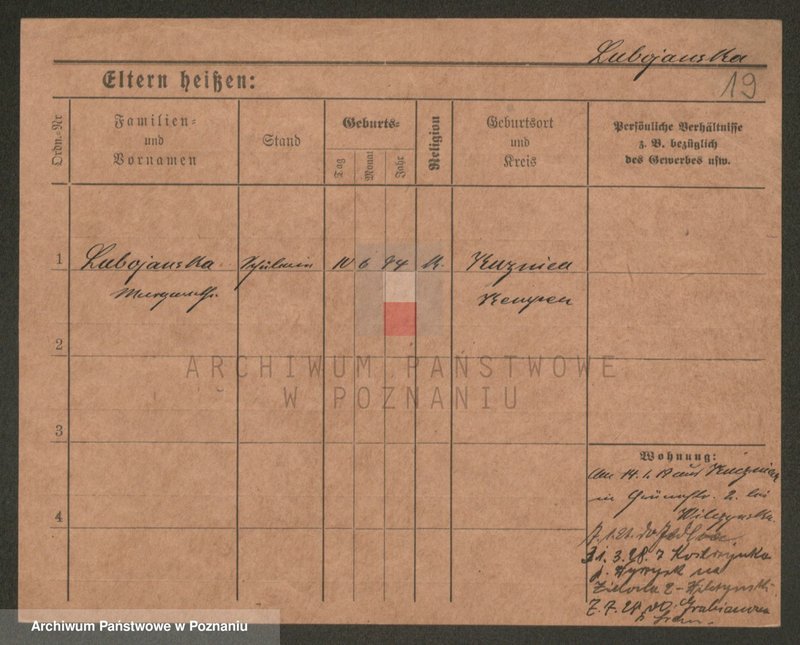 Lubojanska
19
Eltern heißen:
Ordn.-Nr
Familien-
und
Vornamen
Stand
Geburts-
Tag
Monat
Jahr
Religion
Geburtsort
und
Kreis
Persönliche Verhältnisse
z. B. bezüglich
des Gewerbes usw.
1
Lubojanska
Schülerin
10 6 04 K.
Kuznica
Kempen
2
3
4
Wohnung:
Am 14. 1. 19 aus
in Grünestr. 2. bei
31. 3. 28. z
Zielona 2
7. 7. 28 do Grabianowa
p. Śrem.
ARCHIWUM PAŃSTWOWE
W POZNANIU
Archiwum Państwowe w Poznaniu